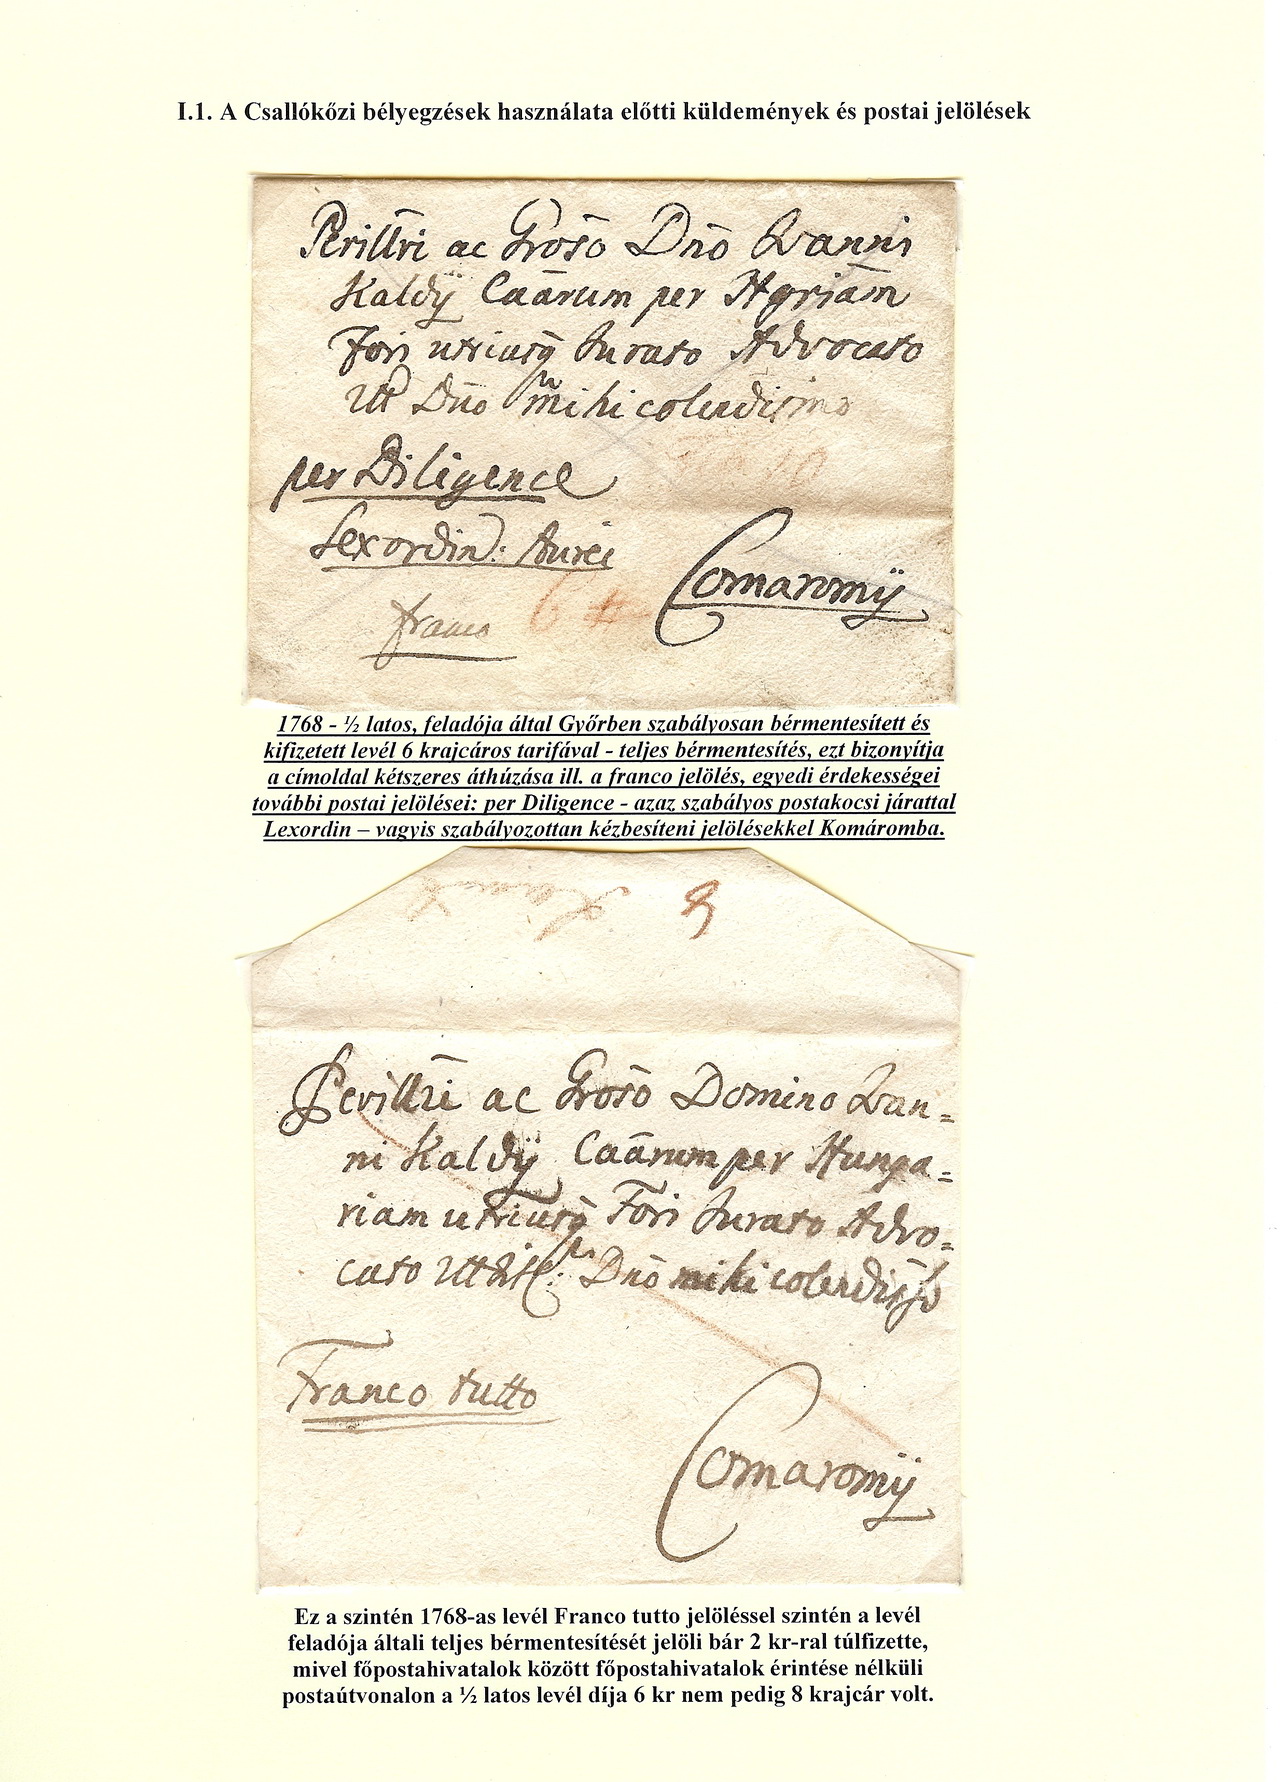 I.1. A Csallókőzi bélyegzések használata előtti küldemények és postai jelölések
Perillri ac Groso Dno Ioanni
Kaldÿ Caãrum per Hgriam
Fori utriusq Jurato Advocato
Utt Dno mihi colendissimo
per Diligence
Comaromÿ
franco
1768 - ½ latos, feladója által Győrben szabályosan bérmentesített és
kifizetett levél 6 krajcáros tarifával - teljes bérmentesítés, ezt bizonyítja
a címoldal kétszeres áthúzása ill. a franco jelölés, egyedi érdekességei
további postai jelölései: per Diligence - azaz szabályos postakocsi járattal
Lexordin – vagyis szabályozottan kézbesíteni jelölésekkel Komáromba.
Perillri ac Groso Domino Ioan=
ni Kaldÿ Caãrum per Hunga=
riam utriusq Fori Jurato Advo=
cato Dno mihi
Franco tutto
Comaromÿ
Ez a szintén 1768-as levél Franco tutto jelöléssel szintén a levél
feladója általi teljes bérmentesítését jelöli bár 2 kr-ral túlfizette,
mivel főpostahivatalok között főpostahivatalok érintése nélküli
postaútvonalon a ½ latos levél díja 6 kr nem pedig 8 krajcár volt.